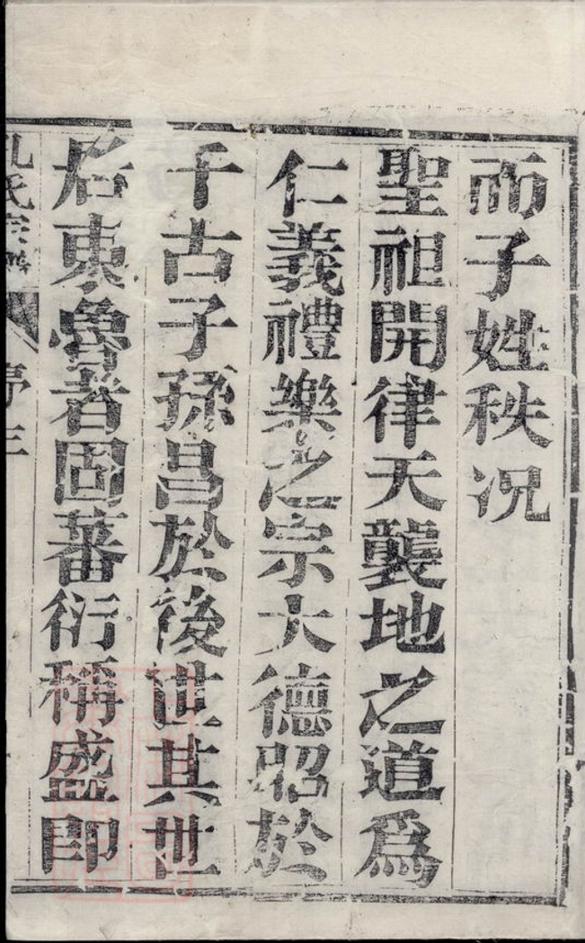 而子姓秩况
聖祖開律天襲地之道為
仁義禮樂之宗大德昭於
千古子孫昌於後世其世
居東魯者固蕃衍稱盛即
孔氏宗譜
序三